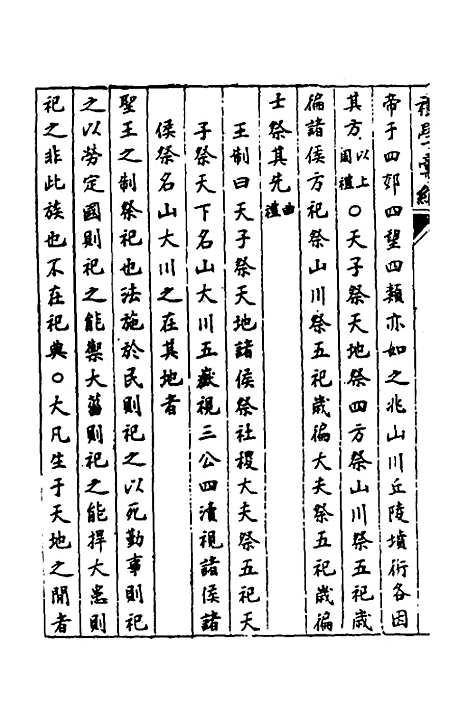 禮學彙編
帝于四郊四望四類亦如之兆山川丘陵墳衍各因
其方以上周禮○天子祭天地祭四方祭山川祭五祀歲
徧諸侯方祀祭山川祭五祀歲徧大夫祭五祀歲徧
士祭其先曲禮
王制曰天子祭天地諸侯祭社稷大夫祭五祀天
子祭天下名山大川五嶽視三公四瀆視諸侯諸
侯祭名山大川之在其地者
聖王之制祭祀也法施於民則祀之以死勤事則祀
之以勞定國則祀之能禦大菑則祀之能捍大患則
祀之非此族也不在祀典○大凡生于天地之間者